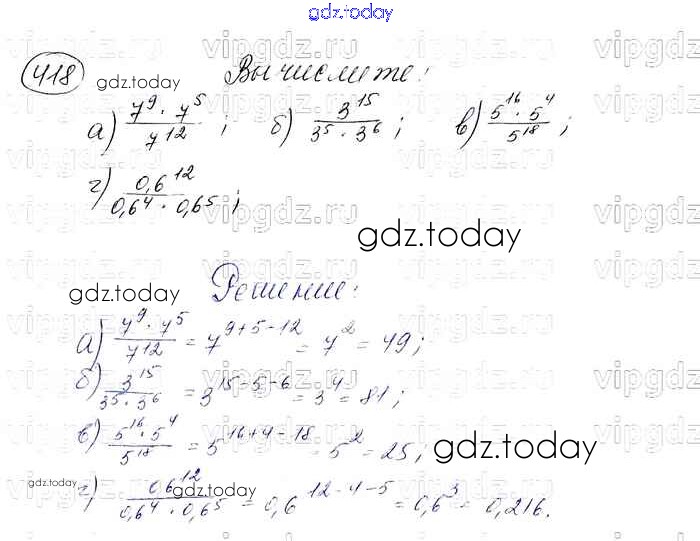 gdz.today
418 gdz.today Вычислите:
а) 7^9 · 7^5 / 7^12 ; б) 3^15 / 3^5 · 3^6 ; в) 5^16 · 5^4 / 5^18 ;
г) 0,6^12 / 0,6^4 · 0,6^5 ;
gdz.today
gdz.today Решение:
а) 7^9 · 7^5 / 7^12 = 7^9+5-12 = 7^2 = 49;
б) 3^15 / 3^5 · 3^6 = 3^15-5-6 = 3^4 = 81;
в) 5^16 · 5^4 / 5^18 = 5^16+4-18 = 5^2 = 25; gdz.today
г) 0,6^12 / 0,6^4 · 0,6^5 = 0,6^12-4-5 = 0,6^3 = 0,216.
gdz.today gdz.today
vipgdz.ru vipgdz.ru vipgdz.ru